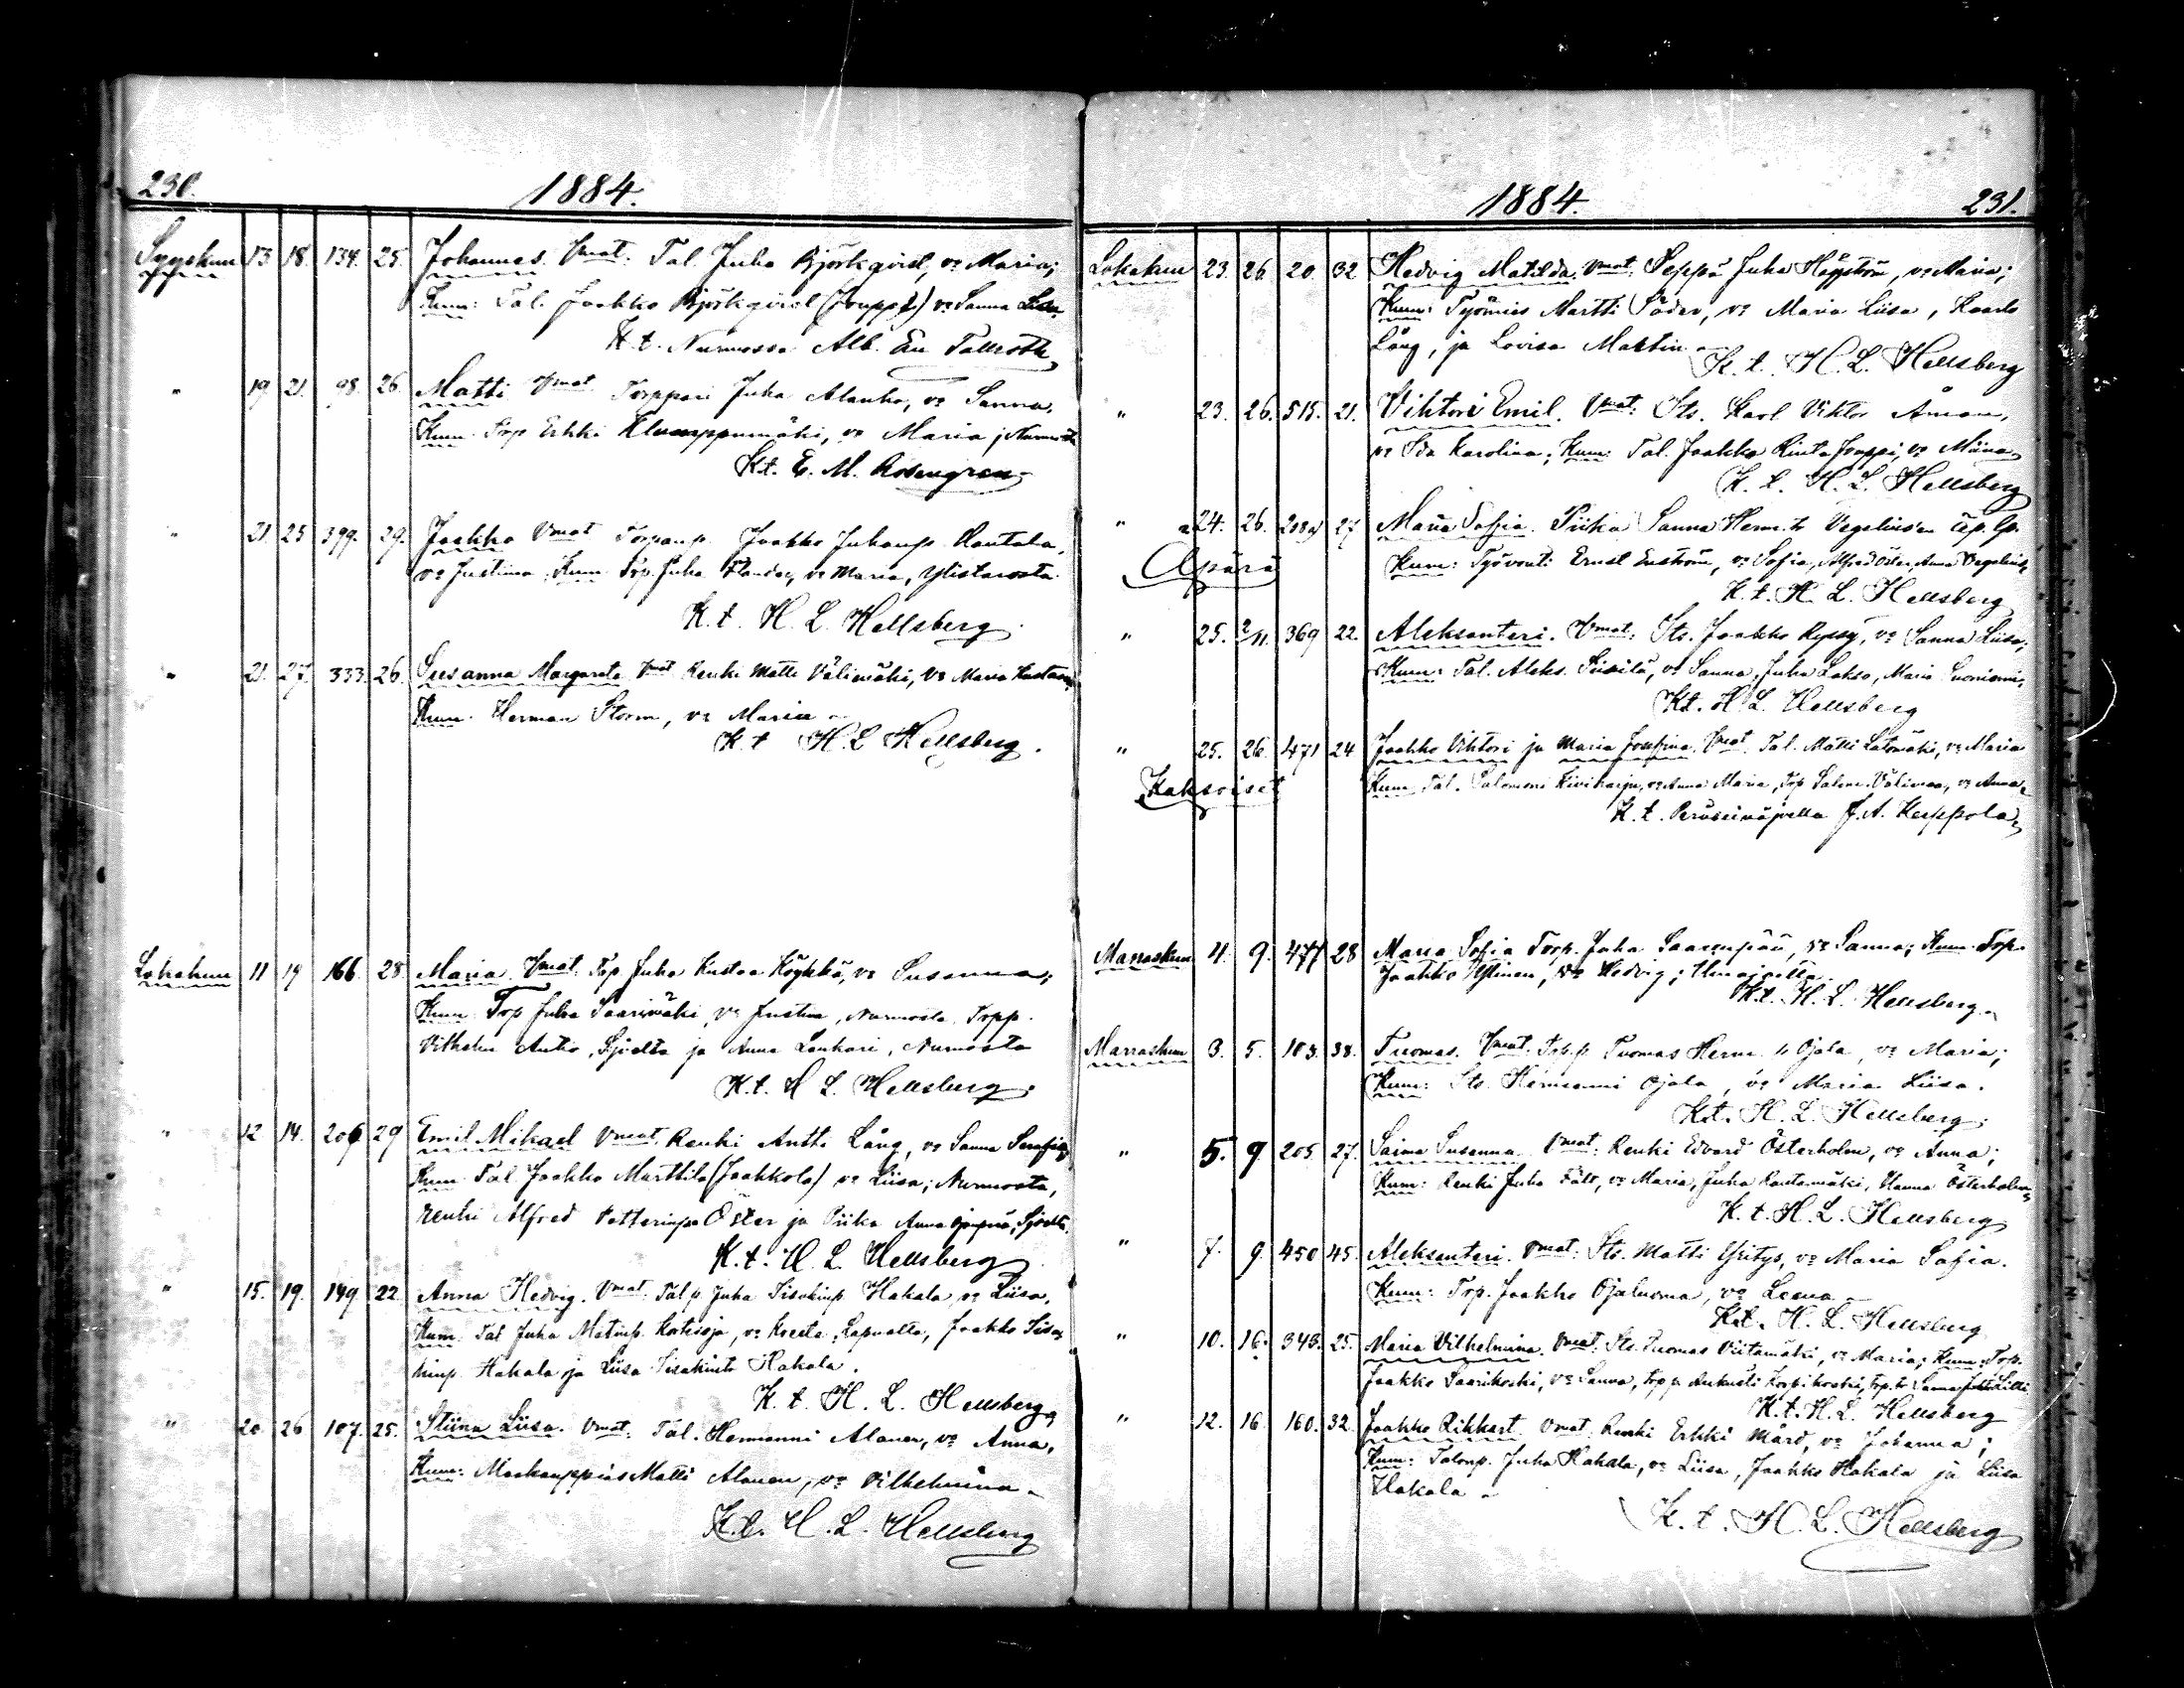 230. 1884.
Syyskuu 13. 18. 134. 25. Johannes. Vmat: Tal. Juha Björkqvist, vo Maria;
Kum: Tal. Jaakko Björkqvist (Jouppi) vo Sanna Liisa
K. t. Nurmossa Alb. En Tallroth
" 19 21. 98. 26. Matti Vmat Torppari Juha Alanko, vo Sanna.
Kum. Trp Erkki Klemppumäki, vo Maria;
Kt. E. M. Rosengren
" 21. 25 399. 29. Jaakko Vmat Torpanp. Jaakko Juhanp. Rautala,
vo Justiina, Kum Trp. Juha vo Maria, Ylistarosta.
K. t. H. L. Hellsberg.
" 21. 27. 333. 26. Susanna Margareta Vmat Renki Matti Välimäki, vo Maria
Kum. Herman Storm, vo Maria
K. t H. L Hellsberg.
Lokakuu 11 19 166. 28. Maria. Vmat. Trp Juha Kustaa Köykkä, vo Susanna;
Kum. Trp Juha Saarimäki, vo Justina, Nurmosta. Torpp.
Vilhelm Autio, ja Anna Lankari, Nurmosta
K. t. H L. Hellsberg.
" 12 14. 206 29 Emil Mikael Vmat. Renki Antti Lång, vo Sanna Serafia;
Kum Tal. Jaakko Marttila (Jaakkola) vo Liisa; Nurmosta,
renki Alfred Petterinp. Öster ja Piika Anna
K. t. H. L. Hellsberg
" 15. 19. 149 22. Anna Hedvig. Vmat: Tal. p. Juha Iisakinp Hakala, vo Liisa,
Kum. Tal Juha Matinp. vo Lapualta, Jaakko Iisa
kinp. Hakala ja Liisa Iisakint Hakala.
K. t. H. L. Hellsberg
" 20. 26 107. 25. Stiina Liisa. Vmat: Tal. Hermanni Alanen, vo Anna,
Kum: Maakauppias Matti Alanen, vo Vilhelmiina
K. t. H. L. Hellsberg
1884. 231.
Lokakuu 23. 26. 20. 32 Hedvig Matilda. Vmat: Seppä Juha Häggström, vo Maria;
Kum: Työmies Martti Söder, vo Maria Liisa, Kaarlo
Lång, ja Lovisa Martin
K. t. H. L. Hellsberg
" 23. 26. 515. 21. Vihtori Emil. Vmat: Sts. Karl Viktor Åman,
vo Ida Karolina; Kum: Tal. Jaakko Rinta Jouppi, vo Miina
K. t. H. L. Hellsberg
" 24. 26. 27 Maria Sofia. Piika Sanna Herm. tr
Äpärä Kum: Työvouti Ernst Enström, vo Sofia, Alfred Öster, Anna
K. t. H. L. Hellsberg
" 25. 2/11. 369 22. Aleksanteri. Vmat: Sts. Jaakko Ryssy, vo Sanna Liisa;
Kum: Tal. Aleks. vo Sanna, Juha Lakso, Maria
Kt. H. L. Hellsberg
" 25. 26. 471 24 Jaakko Vihtori ja Maria Josefina. Vmat. Tal. Matti Latomäki, vo Maria
Kaksoiset Kum Tal. Salomoni Kiviharju, vo Anna Maria, Trp Salom. Välimaa, vo Anna
K. t. Peräseinäjoella J. A. Keppola
Marraskuu 4. 9. 477 28 Maria Sofia Torp. Juha Saarenpää, vo Sanna; Kum. Trp.
Jaakko Ylinen, vo Hedvig; Ilmajoelta.
K. t. H. L. Hellsberg.
Marraskuu 3. 5. 103. 38. Tuomas. Vmat: Trp. p. Tuomas Herm. p. Ojala, vo Maria;
Kum: Sts. Hermanni Ojala, vo Maria Liisa.
K. t. H. L Hellsberg.
" 5. 9 205 27. Saima Susanna Vmat: Renki Edvard Österholm, vo Anna;
Kum: Renki Juha Fält, vo Maria, Juha Rautamäki, Hanna Österholm
K. t. H. L. Hellsberg
" 7. 9. 450 45. Aleksanteri. Vmat: Sts. Matti Yritys, vo Maria Sofia.
Kum: Trp. Jaakko Ojaluoma, vo Leena
K. t. H. L. Hellsberg
" 10. 16. 343. 25. Maria Vilhelmina. Vmat. Sts. Tuomas Viitamäki, vo Maria; Kum: Trp.
Jaakko Saarikoski, vo Sanna, trp. p. Aukusti Korpikoski, trp. tr Sanna
K. t. H. L. Hellsberg
" 12. 16. 160. 32. Jaakko Rikhart. Vmat. Renki Erkki Mård, vo Johanna;
Kum: Talonp. Juha Hakala, vo Liisa, Jaakko Hakala ja Liisa
Hakala
K. t. H. L. Hellsberg